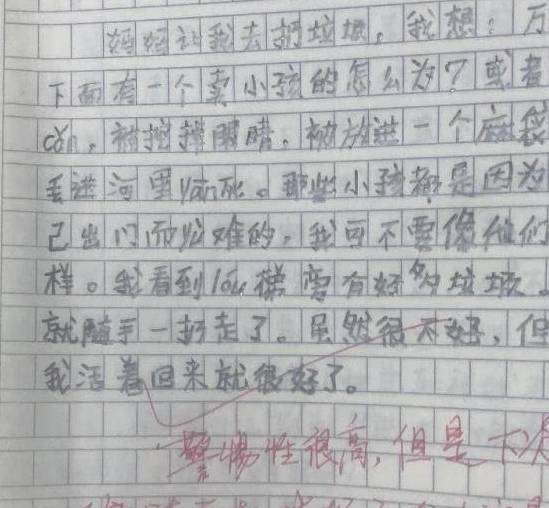 妈妈让我去扔垃圾，我想：万
下面有一个卖小孩的怎么为？或者
cǎn，被挖掉眼睛，被放进一个麻袋
丢进河里yān死。那些小孩都是因为
己出门而遇难的，我可不要像他们
样。我看到lóu梯旁有好多垃圾。
就随手一扔走了。虽然很不好，但
我活着回来就很好了。
警惕性很高，但是下次